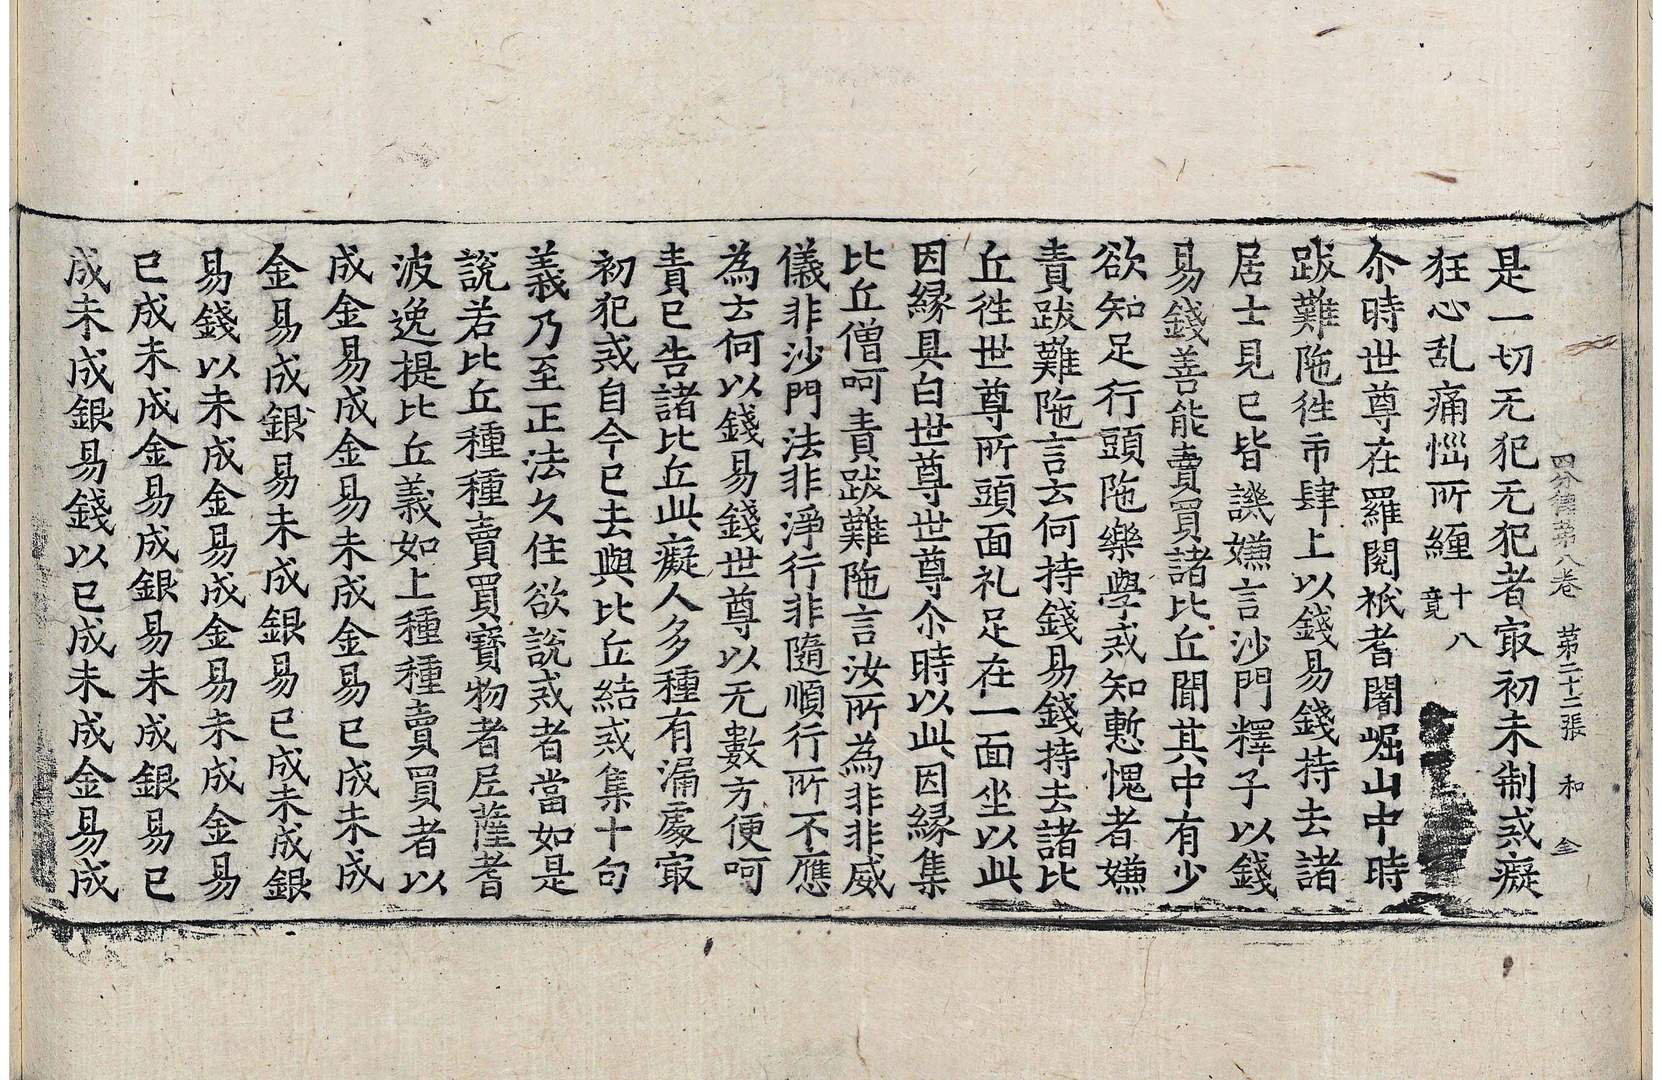 四分律第八卷 第二十二張 和 仝
是一切无犯无犯者㝡初未制戒癡
狂心乱痛惱所纏 十八竟
尒時世尊在羅閱祇耆闍崛山中時
跋難陁徃市肆上以錢易錢持去諸
居士見已皆譏嫌言沙門釋子以錢
易錢善能賣買諸比丘聞其中有少
欲知足行頭陁樂學戒知慙愧者嫌
責跋難陁言云何持錢易錢持去諸比
丘徃世尊所頭面礼足在一面坐以此
因縁具白世尊世尊尒時以此因縁集
比丘僧呵責跋難陁言汝所為非非威
儀非沙門法非淨行非隨順行所不應
為云何以錢易錢世尊以无數方便呵
責已告諸比丘此癡人多種有漏處㝡
初犯戒自今已去與比丘結戒集十句
義乃至正法久住欲說戒者當如是
說若比丘種種賣買寶物者尼薩耆
波逸提比丘義如上種種賣買者以
成金易成金易未成金易已成未成
金易成銀易未成銀易已成未成銀
易錢以未成金易成金易未成金易
已成未成金易成銀易未成銀易已
成未成銀易錢以已成未成金易成